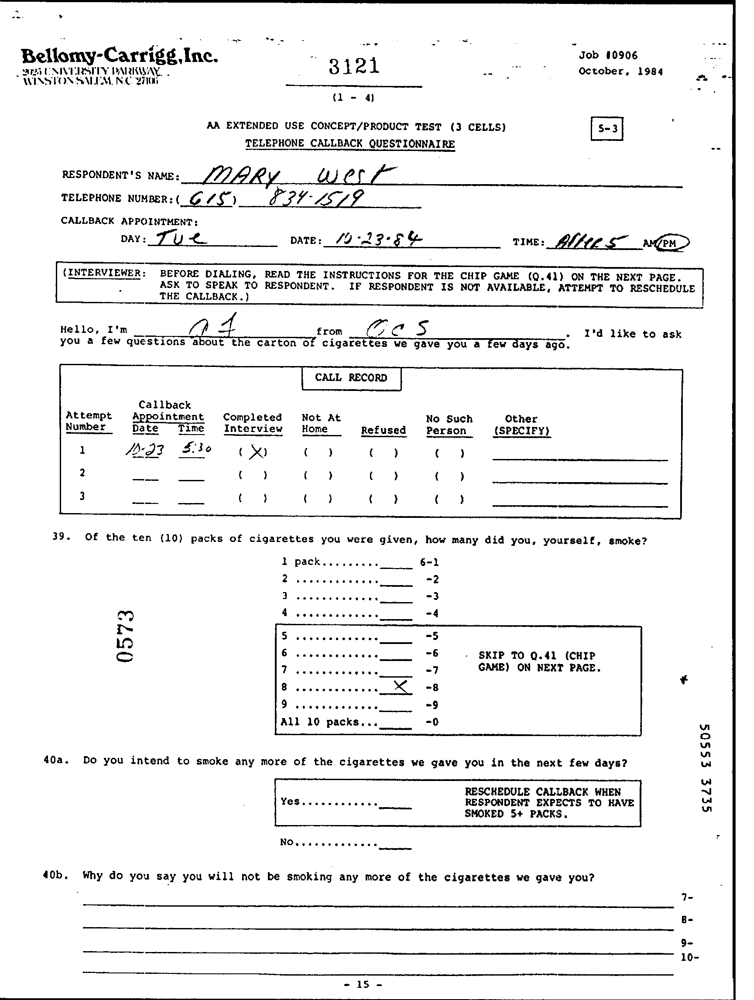 Bellomy-Carrigg, Inc.
2025 UNIVERSITY PARKWAY
WINSTON SALEM, N.C. 27106
3121
(1 - 4)
Job #0906
October, 1984
AA EXTENDED USE CONCEPT/PRODUCT TEST (3 CELLS)
S-3
TELEPHONE CALLBACK QUESTIONNAIRE
RESPONDENT'S NAME: MARY West
TELEPHONE NUMBER: (615) 834-1519
CALLBACK APPOINTMENT:
DAY: Tue DATE: 10-23-84 TIME: After 5 AM/PM
(INTERVIEWER: BEFORE DIALING, READ THE INSTRUCTIONS FOR THE CHIP GAME (Q.41) ON THE NEXT PAGE.
ASK TO SPEAK TO RESPONDENT. IF RESPONDENT IS NOT AVAILABLE, ATTEMPT TO RESCHEDULE
THE CALLBACK.)
Hello, I'm from . I'd like to ask
you a few questions about the carton of cigarettes we gave you a few days ago.
CALL RECORD
Attempt Number Callback Appointment Date Time Completed Interview Not At Home Refused No Such Person Other (SPECIFY)
1 10-23 5:30 (X) ( ) ( ) ( )
2 ___ ___ ( ) ( ) ( ) ( )
3 ___ ___ ( ) ( ) ( ) ( )
39. Of the ten (10) packs of cigarettes you were given, how many did you, yourself, smoke?
1 pack.........____ 6-1
2 .............____ -2
3 .............____ -3
4 .............____ -4
5 .............____ -5
6 .............____ -6 SKIP TO Q.41 (CHIP
7 .............____ -7 GAME) ON NEXT PAGE.
8 .............X -8
9 .............____ -9
All 10 packs...____ -0
0573
40a. Do you intend to smoke any more of the cigarettes we gave you in the next few days?
Yes............____ RESCHEDULE CALLBACK WHEN
RESPONDENT EXPECTS TO HAVE
SMOKED 5+ PACKS.
No.............____
40b. Why do you say you will not be smoking any more of the cigarettes we gave you?
7-
8-
9-
10-
- 15 -
50553 3735